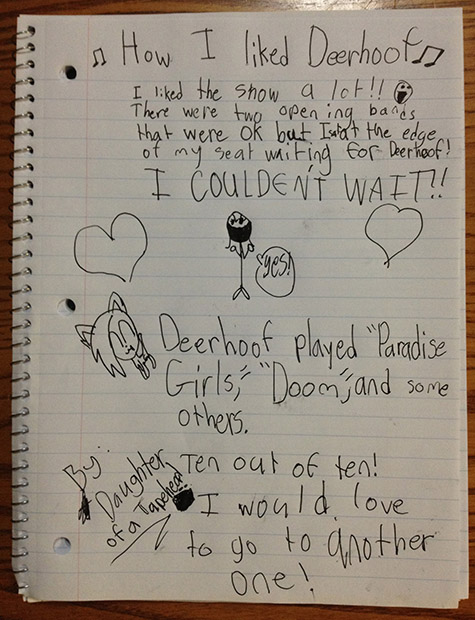 ♫ How I liked Deerhoof ♫
I liked the show a lot!!
There were two opening bands
that were ok but I sat at the edge
of my seat waiting for Deerhoof!
I COULDEN'T WAIT!!
yes!
Deerhoof played "Paradise
Girls," "Doom," and some
others.
Ten out of ten!
I would love
to go to another
one!
By:
Daughter
of a Tapehead